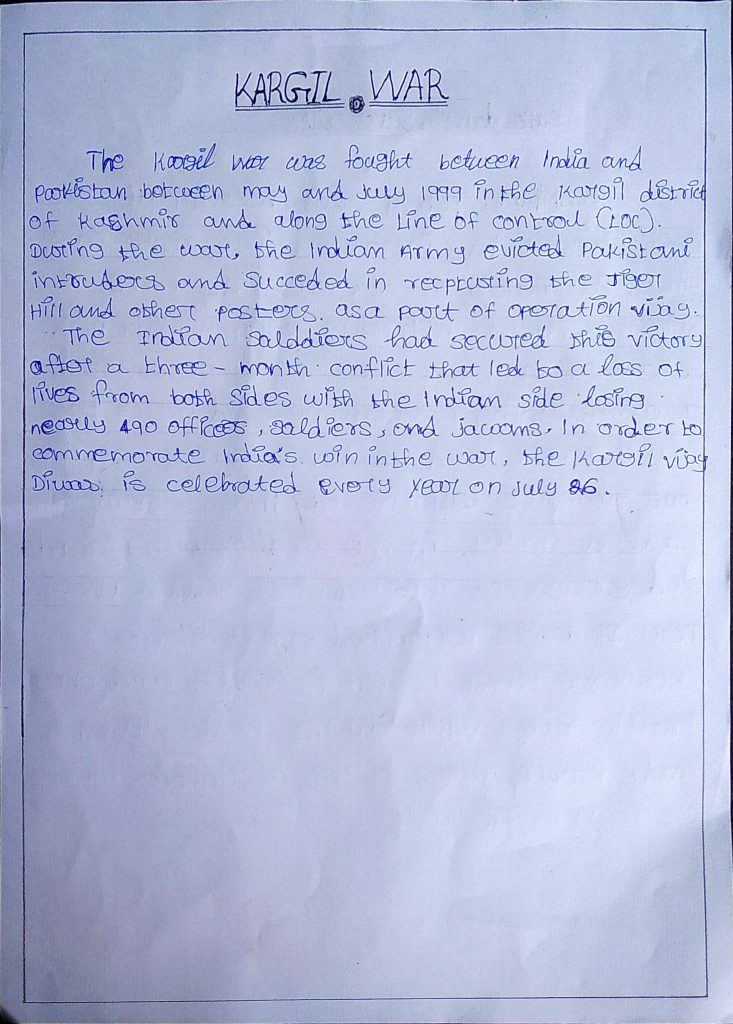 KARGIL WAR
The Kargil war was fought between India and
Pakistan between may and July 1999 in the Kargil district
of Kashmir and along the Line of control (LOC).
During the war, the Indian Army evicted Pakistani
intruders and Succeded in recptusting the Tiger
Hill and other posters. as a part of operation vijay.
The Indian Salddiers had secured this victory
after a three - month conflict that led to a loss of
lives from both sides with the Indian side losing
nearly 490 officers, saldiers, and jacoans. In order to
commemorate India's win in the war, the Kargil vijay
Diwas is celebrated every year on July 26.